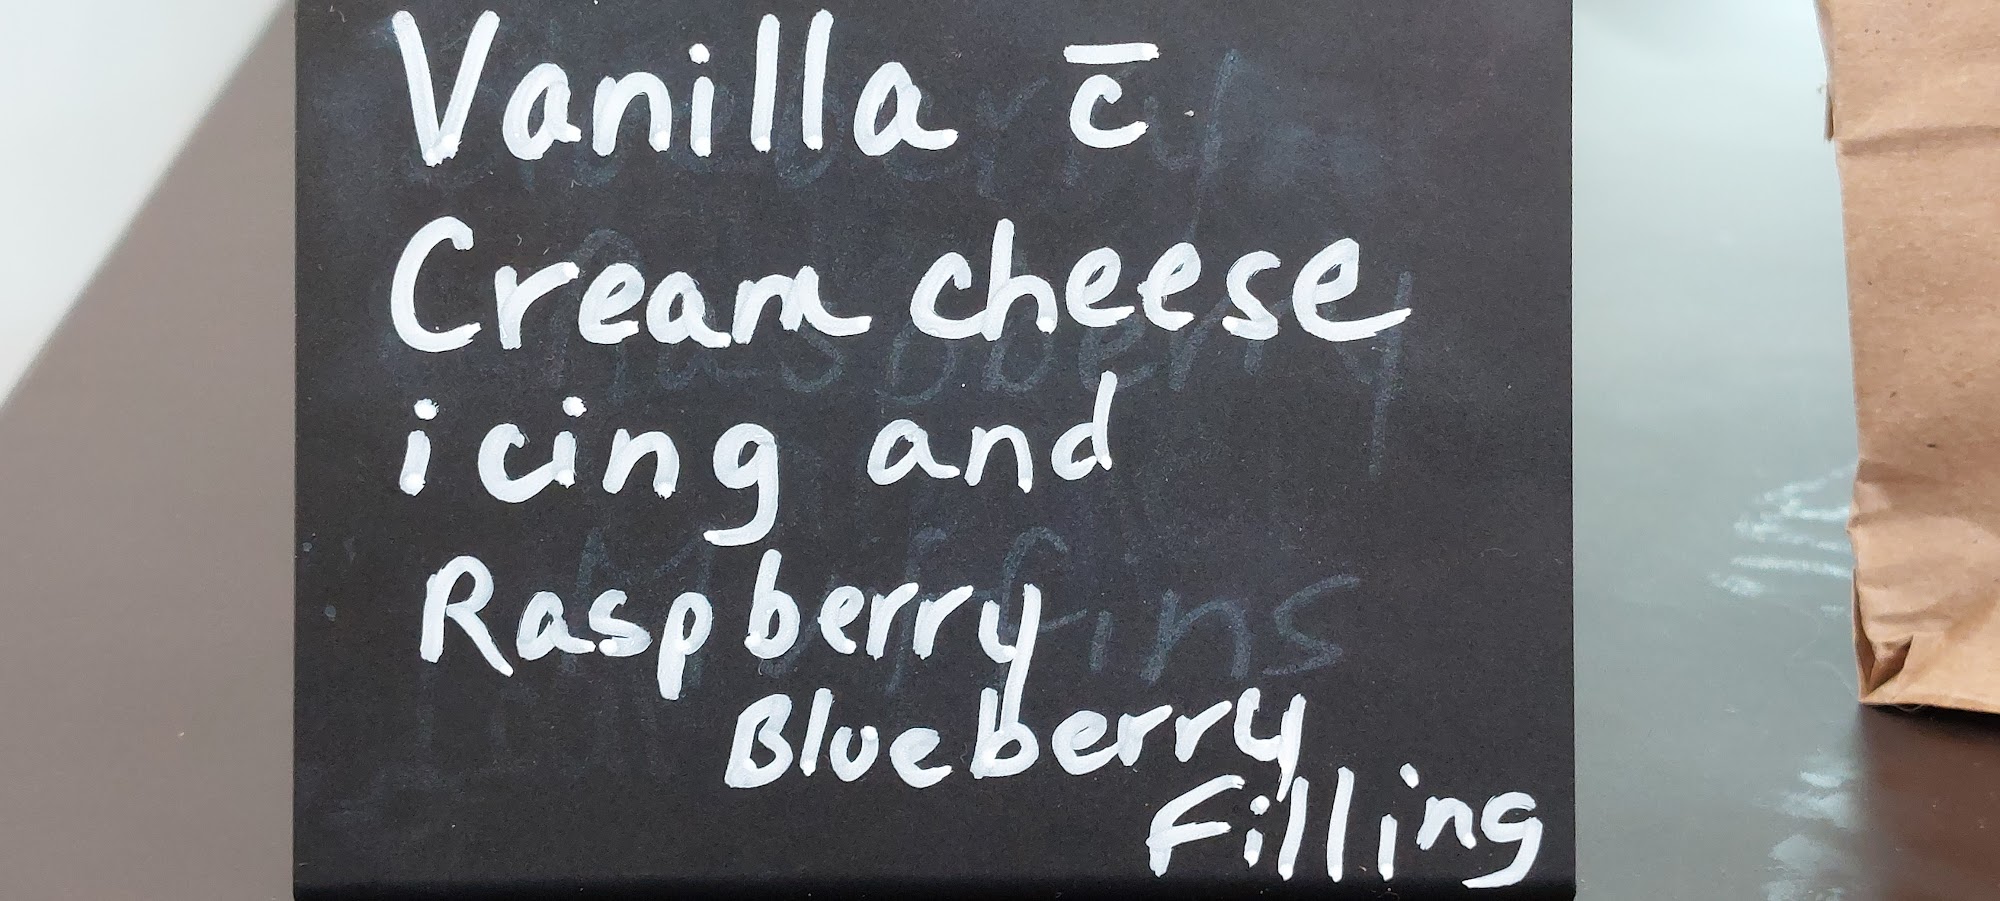 Vanilla c̄
Cream cheese
icing and
Raspberry
Blueberry
Filling